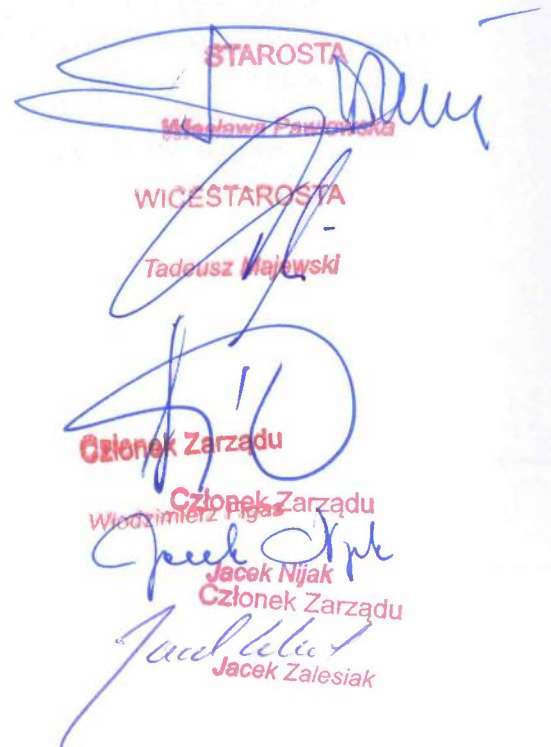 STAROSTA
Wiesława Pawłowska
WICESTAROSTA
Tadeusz Majewski
Członek Zarządu
Członek Zarządu
Włodzimierz Pigas
Jacek Nijak
Jacek Nijak
Członek Zarządu
Jacek Zalesiak